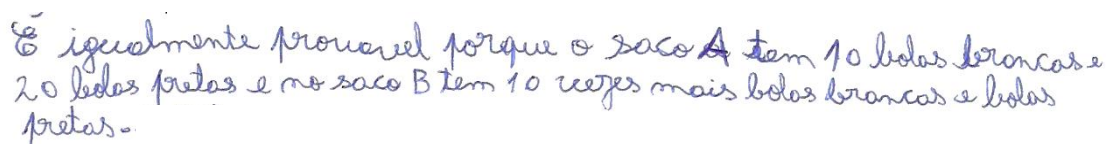 É igualmente provavel porque o saco A tem 10 bolas brancas e
20 bolas pretas e no saco B tem 10 vezes mais bolas brancas e bolas
pretas.